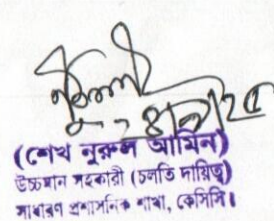 (শেখ নুরুল আমিন)
উচ্চমান সহকারী (চলতি দায়িত্ব)
সাধারণ প্রশাসনিক শাখা, কেসিসি।